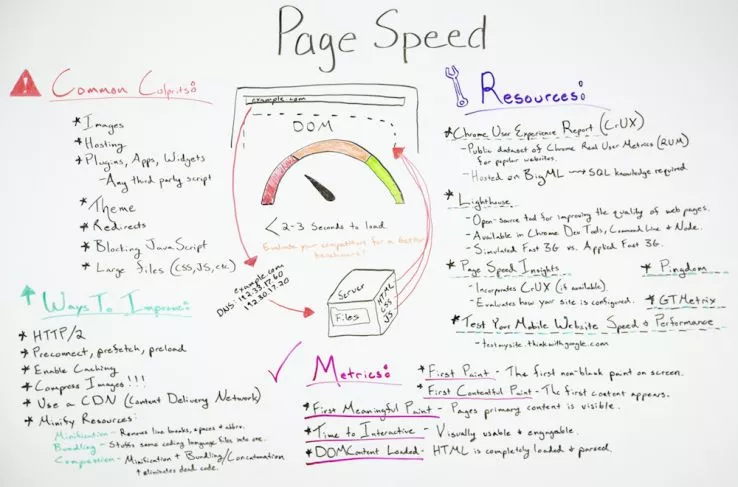 Page Speed
Common Culprits:
* Images
* Hosting
* Plugins, Apps, Widgets
- Any third party script
* Theme
* Redirects
* Blocking JavaScript
* Large files (CSS, JS, etc)
Ways To Improve:
* HTTP/2
* Preconnect, prefetch, preload
* Enable Caching
* Compress Images!!!
* Use a CDN (Content Delivery Network)
* Minify Resources:
Minification - Removes line breaks, spaces + abbrv.
Bundling - Stuffs same coding language files into one.
Compression - Minification + Bundling/Concatenation
+ eliminates dead code.
example.com
DOM
< 2-3 Seconds to load
Evaluate your competitors for a better
benchmark!
example.com
DNS:
Server
Files
HTML
CSS
JS
Resources:
* Chrome User Experience Report (CrUX)
- Public dataset of Chrome Real User Metrics (RUM)
for popular websites.
- Hosted on BigML → SQL knowledge required
* Lighthouse
- Open-source tool for improving the quality of web pages.
- Available in Chrome Dev Tools, Command Line + Node.
- Simulated Fast 3G vs. Applied Fast 3G.
* Page Speed Insights
- Incorporates CrUX (if available)
- Evaluates how your site is configured.
* Pingdom
* GTMetrix
* Test Your Mobile Website Speed + Performance
- testmysite.thinkwithgoogle.com
Metrics:
* First Paint - The first non-blank paint on screen.
* First Contentful Paint - The first content appears.
* First Meaningful Paint - Pages primary content is visible.
* Time to Interactive - Visually usable + engageable.
* DOMContent Loaded - HTML is completely loaded + parsed.